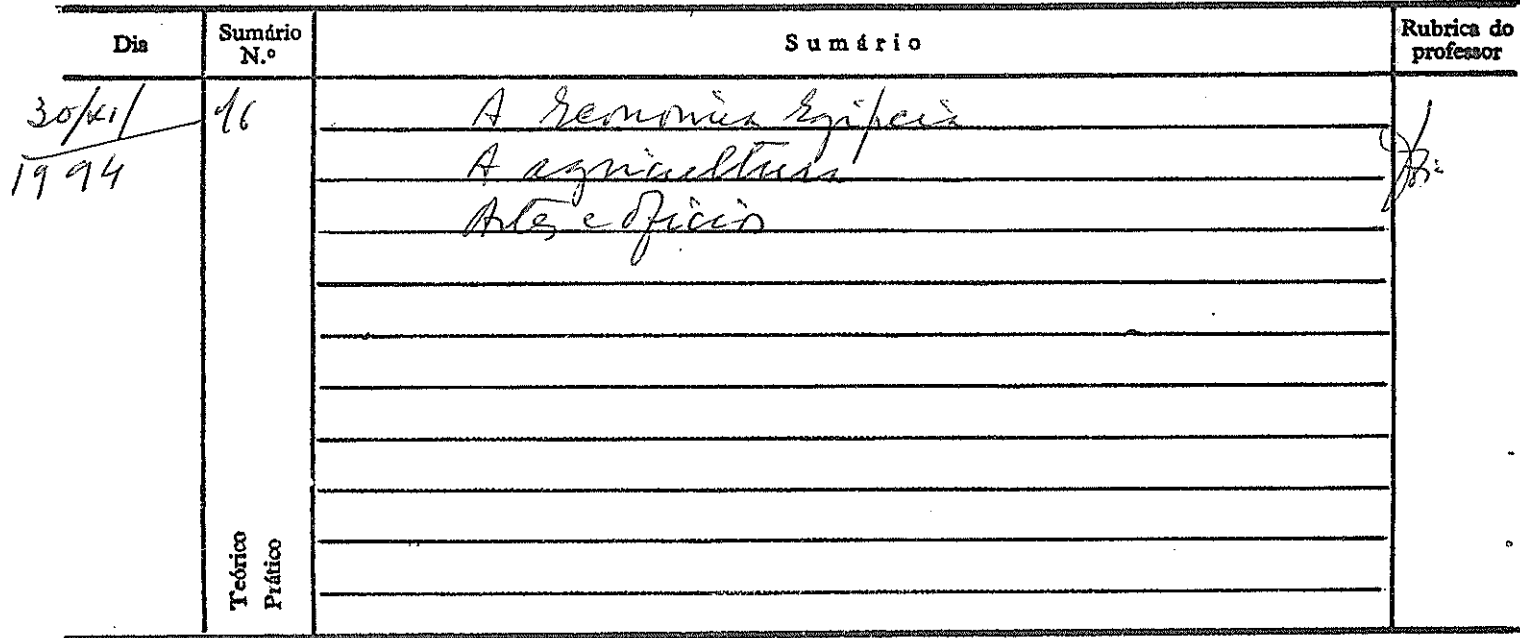 Dia
Sumário N.º
Sumário
Rubrica do professor
30/XI/1994
16
A Economia Egípcia
A agricultura
Artes e ofícios
Teórico
Prático